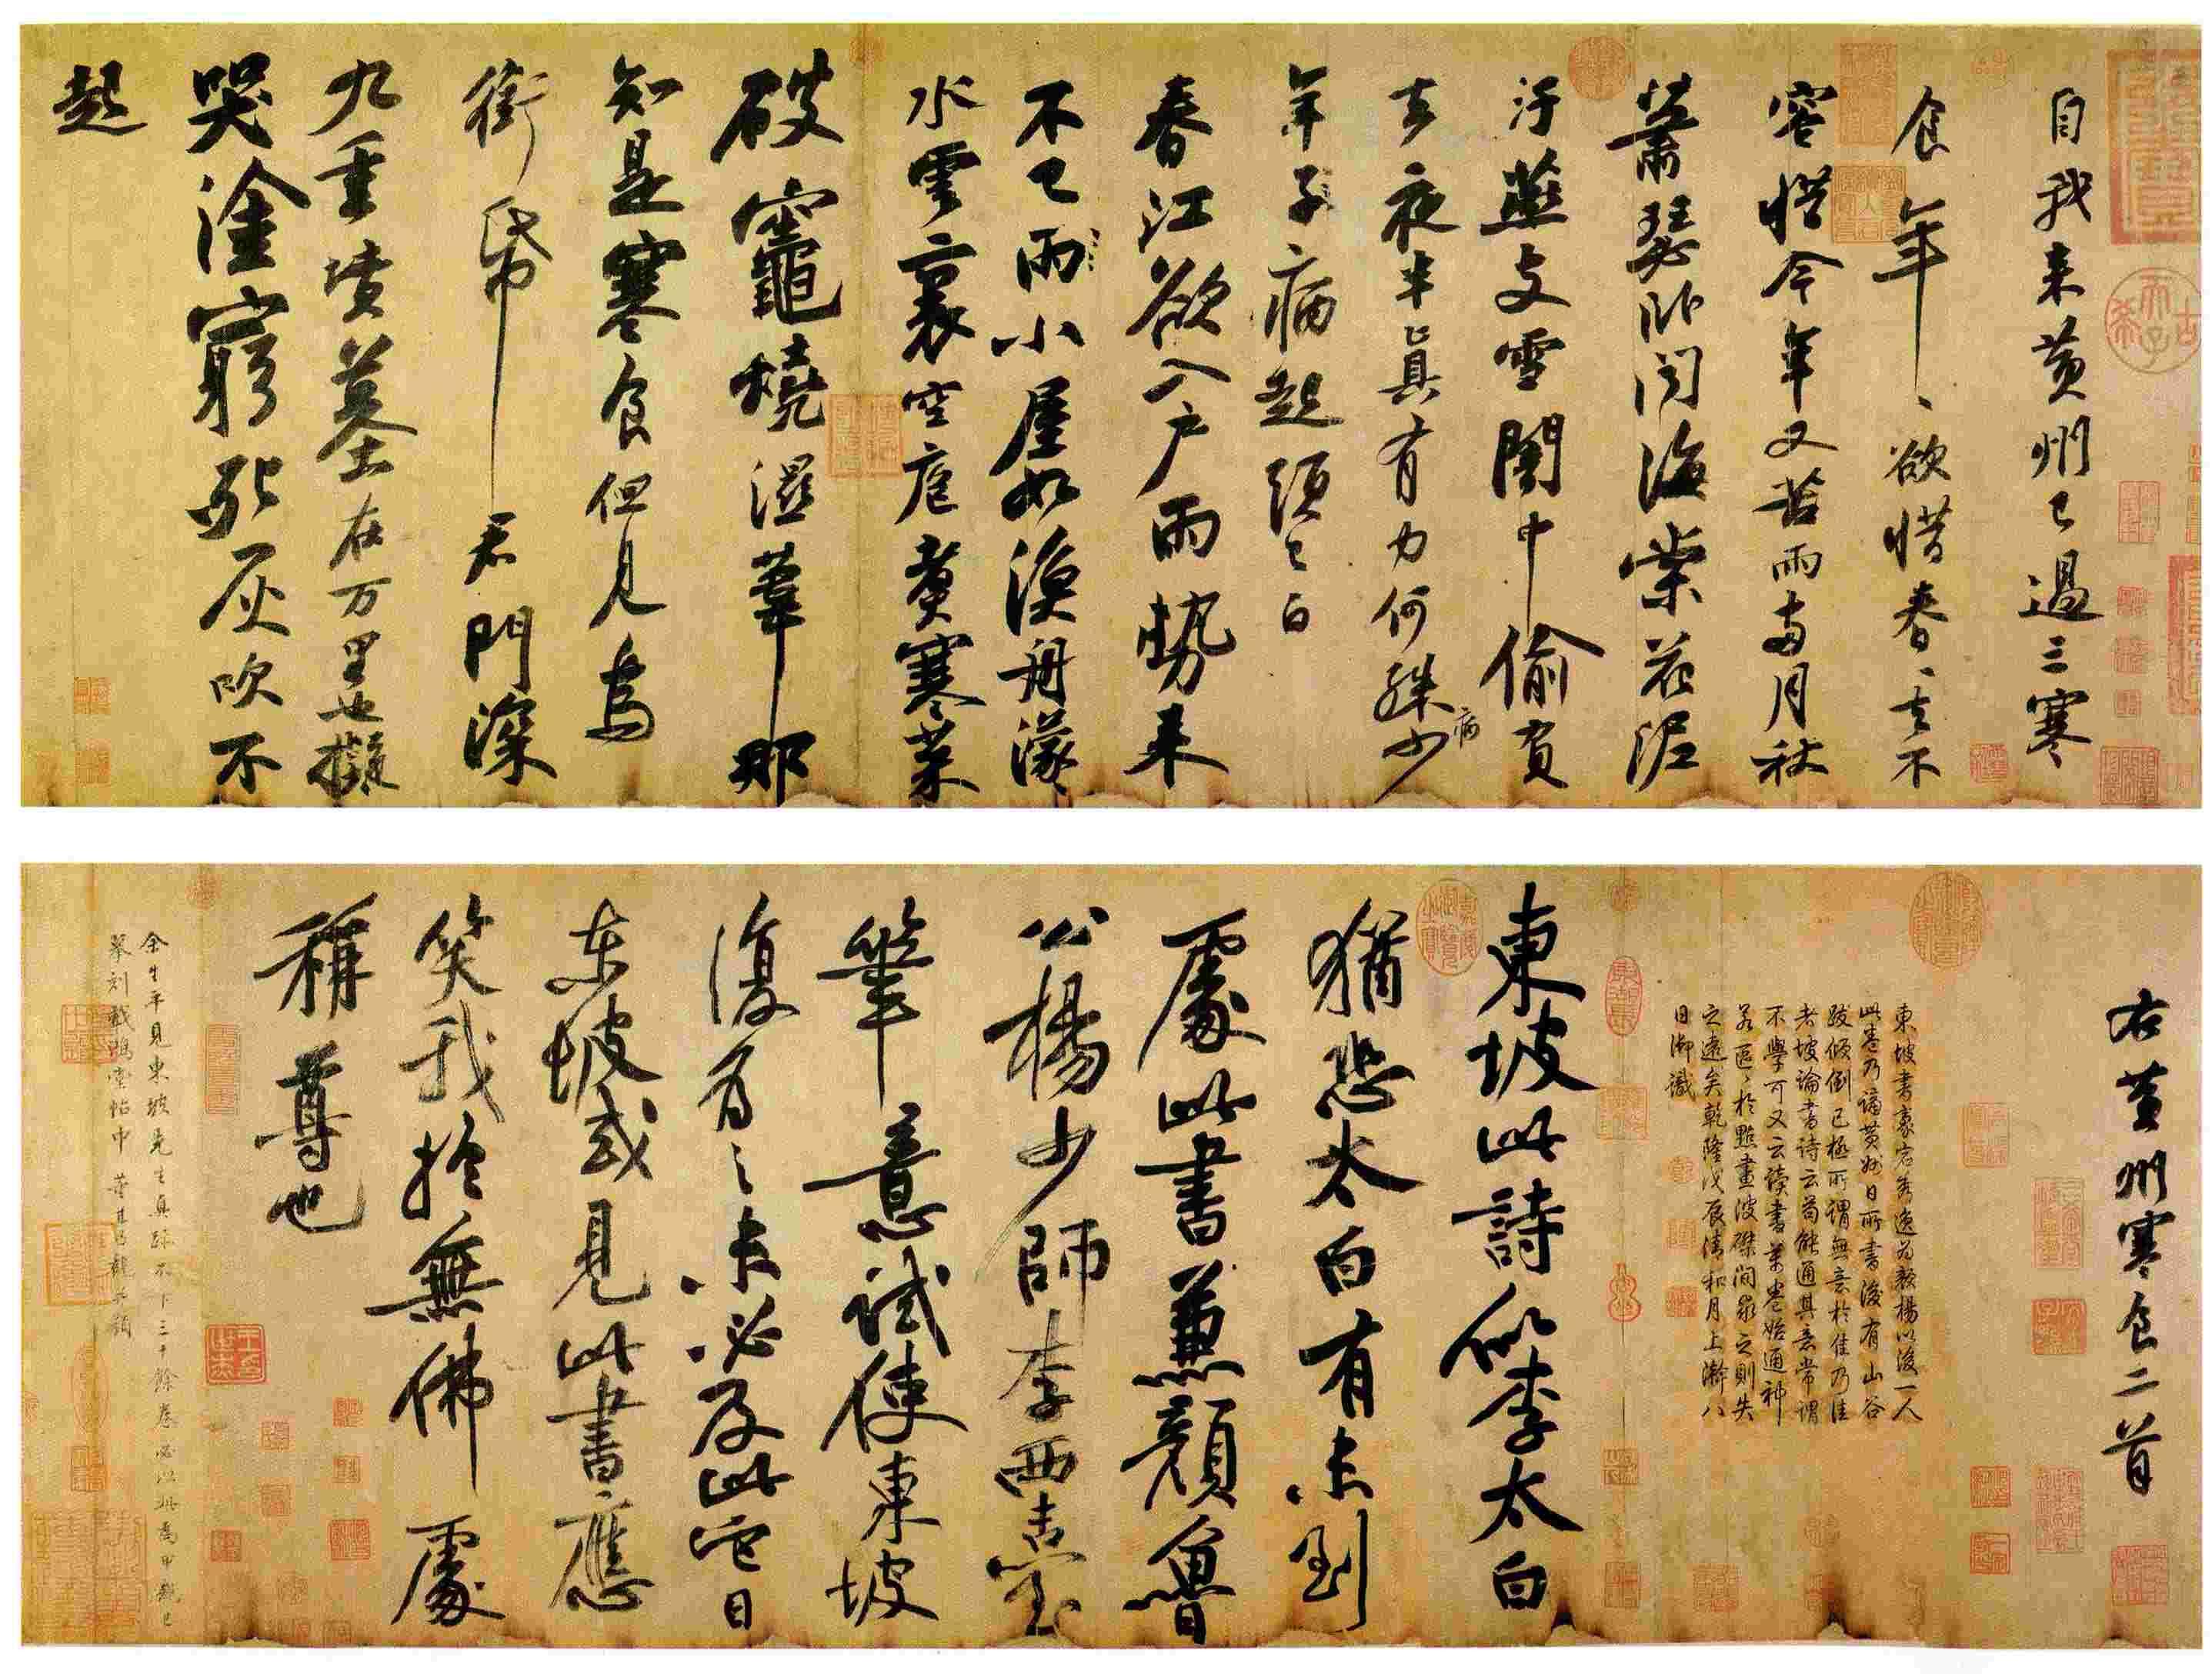 自我来黄州已過三寒
食年〻欲惜春〻去不
容惜今年又苦雨兩月秋
蕭瑟卧聞海棠花泥
汙燕支雪闇中偷負
去夜半真有力何殊少
病
年子病起須已白
春江欲入户雨勢来
不已雨小屋如漁舟濛〻
水雲裏空庖煮寒菜
破竈燒濕葦那
知是寒食但見烏
銜帋君門深
九重墳墓在万里也擬
哭塗窮死灰吹不
起
右黄州寒食二首
東坡書豪宕秀逸為顏楊以後一人
此卷乃謫黄州日所書後有山谷
跋傾倒已極所謂無意於佳乃佳
者坡論書詩云苟能通其意常謂
不學可又云讀書萬卷始通神
若區〻於點畫波磔間求之則失
之遠矣乾隆戊辰清和月上澣八
日御識
東坡此詩似李太白
猶恐太白有未到
處此書兼顏魯
公楊少師李西臺
筆意試使東坡
復為之未必及此它日
东坡或見此書應
笑我於無佛處
稱尊也
余生平見東坡先生真跡不下三十餘卷必以此為甲觀已
摹刻戲鴻堂帖中 董其昌觀并題